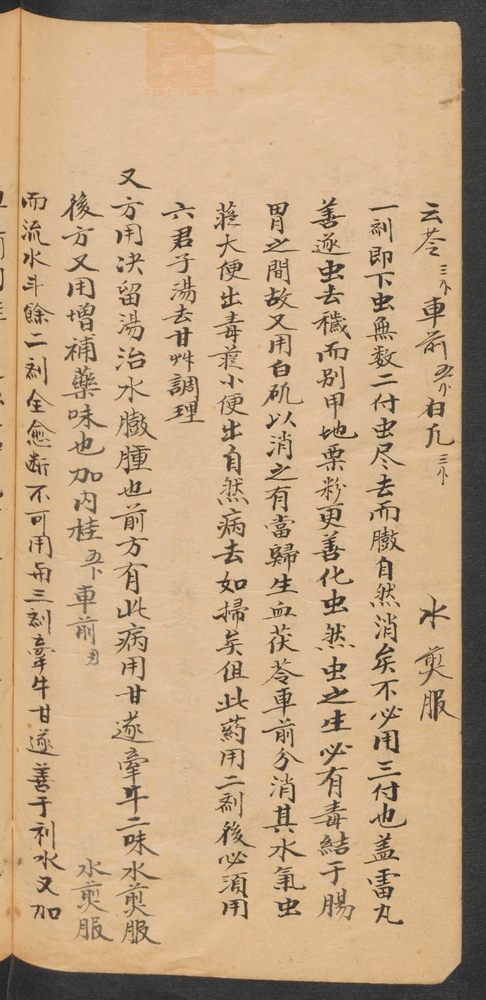 云苓三个車前五个白凡三个 水煎服
一剂即下虫無数二付虫尽去而臌自然消矣不必用三付也盖雷丸
善逐虫去穢而别甲地栗粉更善化虫然虫之生必有毒結于腸
胃之間故又用白矾以消之有當歸生血茯苓車前分消其水氣虫
從大便出毒從小便出自然病去如掃矣但此药用二剂後必須用
六君子湯去甘艸調理
又方用决留湯治水臌腫也前方有此病用甘遂牽牛二味水煎服
後方又用增補藥味也加内桂五下車前 水煎服
而流水斗餘二剂全愈断不可用 三剂牽牛甘遂善于利水又加